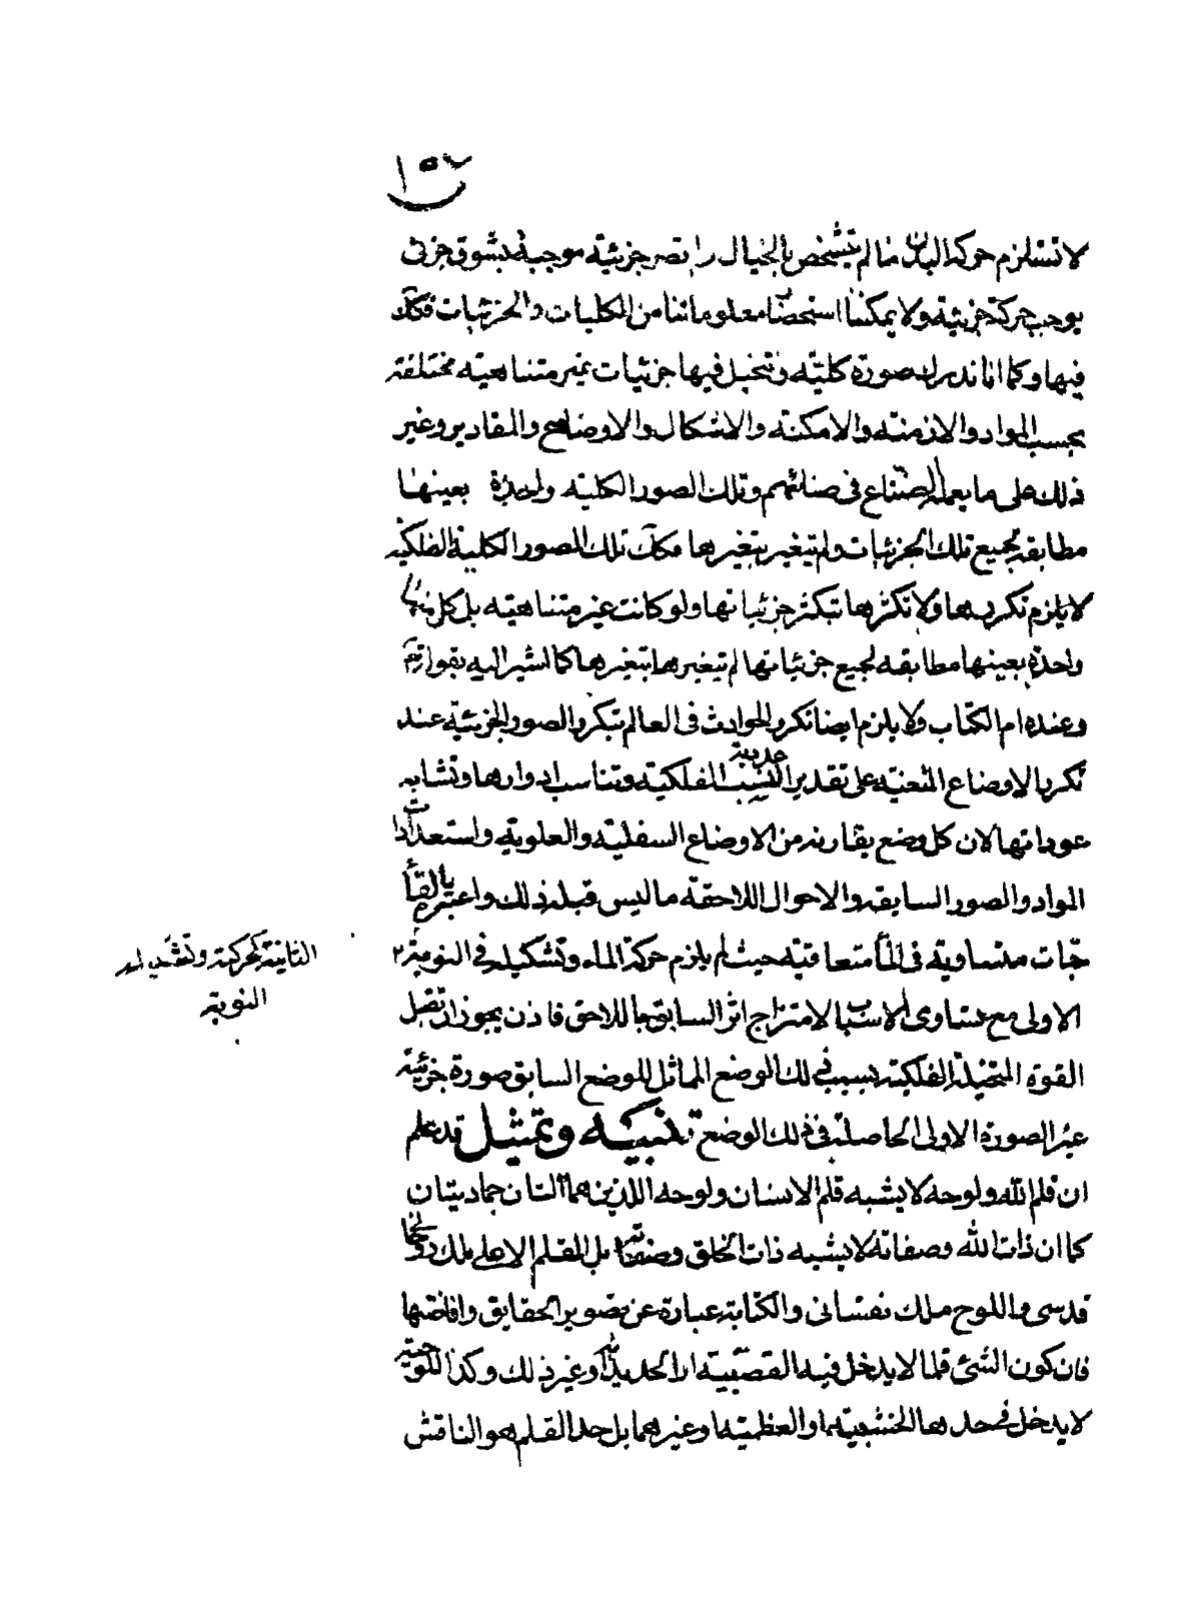 ١٥٧
لا تستلزم حركة البدن ما لم يتشخص بالخيال تصر جزئية موجبة لشوق جزئى
يوجب حركة جزئية ولا يمكننا استحضار معلوماتنا من الكليات والجزئيات فكك
فيها وكما انا ندرك صورة كلية ونتخيل فيها جزئيات غير متناهية مختلفة
بحسب المواد والازمنة والامكنة والاشكال والاوضاع والمقادير وغير
ذلك على ما يعمله الصناع فى صنائعهم وتلك الصور الكلية واحدة بعينها
مطابقة لجميع تلك الجزئيات ولم تتغير بتغيرها فكك تلك الصور الكلية الفلكية
لا يلزم تكررها ولا تكثرها بتكثر جزئياتها ولو كانت غير متناهية بل كل منها
واحدة بعينها مطابقة لجميع جزئياتها لم تتغيرها بتغيرها كما اشير اليه بقوله تم
وعنده ام الكتاب ولا يلزم ايضا تكرر الحوادث فى العالم بتكرر الصور الجزئية عند
تكرر الاوضاع المعنية على تقدير النسب العددية الفلكية وتناسب ادوارها وتشابه
عوداتها لان كل وضع يقارنه من الاوضاع السفلية والعلوية واستعدادات
المواد والصور السابقه والاحوال اللاحقة ما ليس قبله ذلك واعتبره بالقاء
حجات متساوية فى الماء متعاقبة حيث لم يلزم حركة الماء وتشكيله فى النوبة ٢
الاولى مع تساوى الاسباب لامتزاج اثر السابق باللاحق فاذن يجوز ان تقبل
القوة المتخيلة الفلكية بسبب ذلك الوضع المماثل للوضع السابق صورة جزئية
غير الصورة الاولى الحاصلة فى ذلك الوضع تنبيه وتمثيل قد علم
ان قلم الله ولوحه لا يشبه قلم الانسان ولوحه اللذين هما التان جماديتان
كما ان ذات الله وصفاته لا يشبه ذات الخلق وصفاته بل القلم الاعلى ملك روحانى
قدسى واللوح ملك نفسانى والكتابة عبارة عن تصوير الحقايق وافاضتها
فان كون الشئ قلما لا يدخل فيه القصبية او الحديدية وغير ذلك وكذا اللوحية
لا يدخل فى حدها الخشبية والعظمية او غيرهما بل حد القلم هو الناقش
الثانية كحركته وتشكيله
النوبة